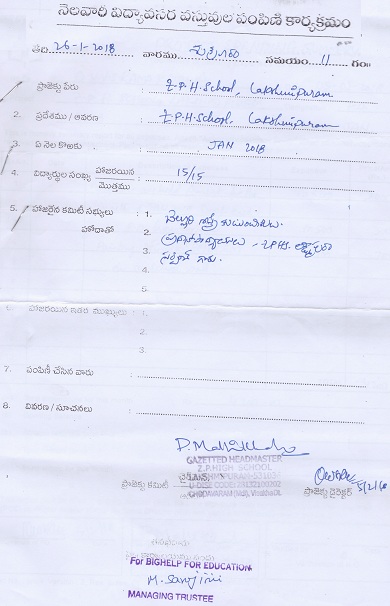 నెలవారి విద్యావసర వస్తువుల పంపిణి కార్యక్రమం
తేది 26-1-2018 వారము శుక్రవారం సమయం 11 గం॥
ప్రాజెక్టు పేరు : Z.P.H.School, Lakshmipuram
2. ప్రదేశము / ఆవరణ : Z.P.H.School, Lakshmipuram
3. ఏ నెల కొఱకు : JAN 2018
4. విద్యార్థుల సంఖ్య హాజరయిన / మొత్తము : 15/15
5. హాజరైన కమిటీ సభ్యులు : 1.
హోదాతో 2. ప్రధానోపాధ్యాయులు - ZPHS
3. గారు.
4.
5.
6. హాజరయిన ఇతర ముఖ్యులు : 1.
2.
3.
7. పంపిణీ చేసిన వారు :
8. వివరణ / సూచనలు :
GAZETTED HEADMASTER
Z.P.HIGH SCHOOL
ప్రాజెక్టు కమిటీ
ప్రాజెక్టు డైరెక్టర్ 5/2/18
For BIGHELP FOR EDUCATION
M. Sanjini
MANAGING TRUSTEE